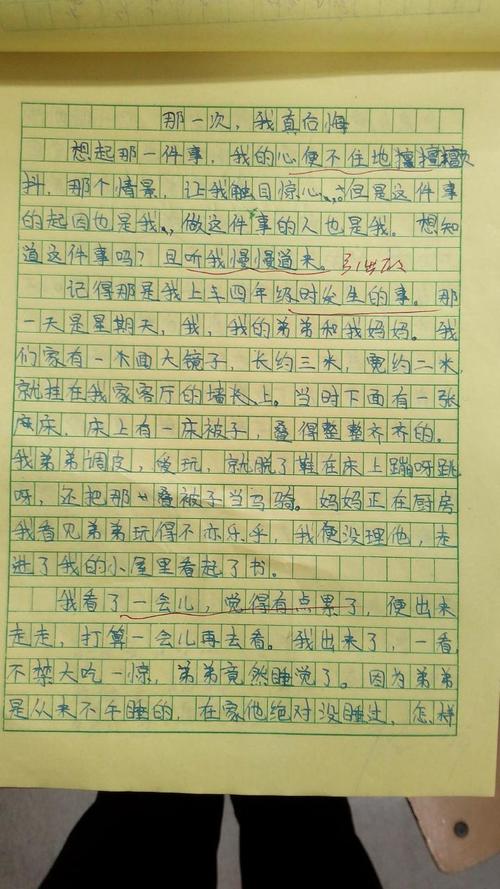 那一次，我真后悔
想起那一件事，我的心便不住地
抖，那个情景，让我触目惊心。但是这件事
的起因也是我，做这件事的人也是我。想知
道这件事吗？且听我慢慢道来。
记得那是我上车四年级时发生的事。那
一天是星期天，我，我的弟弟和我妈妈。我
们家有一木面大镜子，长约三米，宽约二米，
就挂在我家客厅的墙长上。当时下面有一张
床，床上有一床被子，叠得整整齐齐的。
我弟弟调皮，爱玩，就脱了鞋在床上蹦呀跳
呀，还把那叠被子当马骑。妈妈正在厨房
我看见弟弟玩得不亦乐乎，我便没理他，走
进了我的小屋里看起了书。
我看了一会儿，觉得有点累了，便出来
走走，打算一会儿再去看。我出来了，一看，
不禁大吃一惊，弟弟竟然睡觉了。因为弟弟
是从来不午睡的，在家他绝对没睡过，怎样